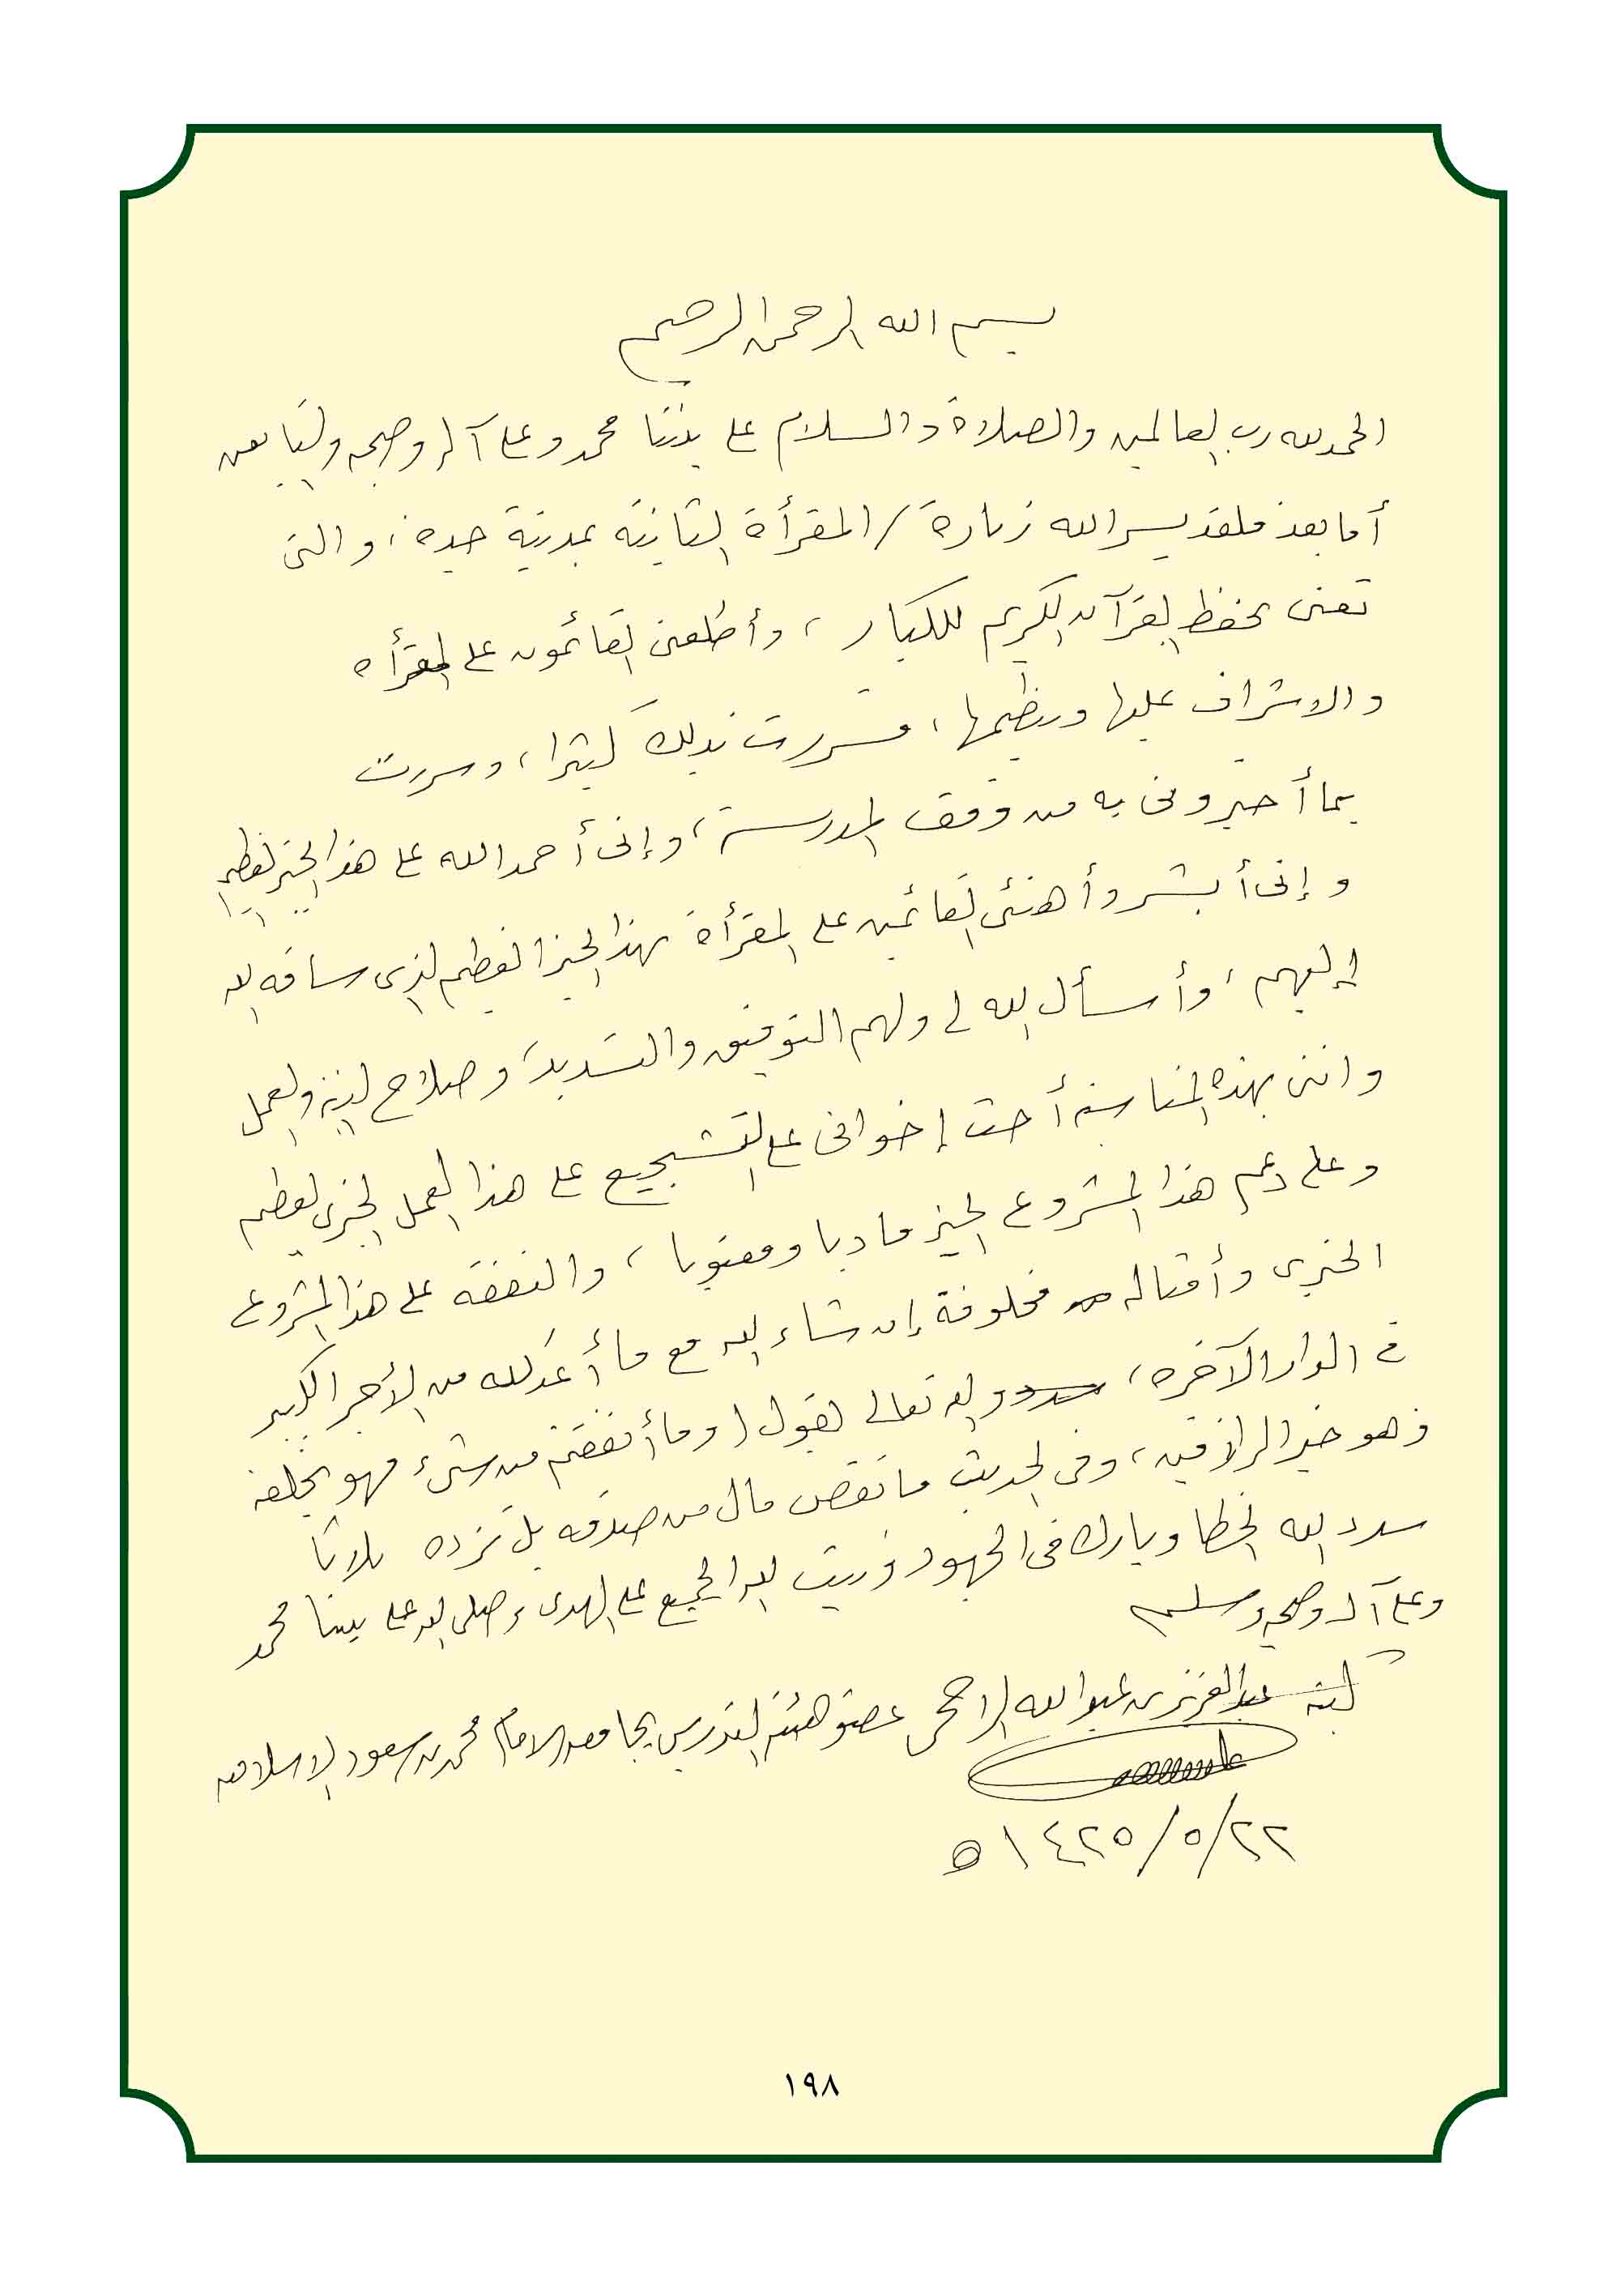 بسم الله الرحمن الرحيم
الحمد لله رب العالمين والصلاة والسلام على نبينا محمد وعلى آله وصحبه والتابعين
أما بعد فلقد يسر الله زيارة / المقرأة الثانية بمدينة جدة، والتي
تعنى بحفظ القرآن الكريم للكبار، وأطلعني القائمون على المقرأه
والاشراف عليها وتنظيمها، فسررت بذلك كثيرا، وسررت
بما أخبروني به من وقف المدرسة، وإني أحمد الله على هذا الخير العظيم
وإني أبشر وأهنئ القائمين على المقرأة بهذا الخير العظيم الذي ساقه الله
إليهم، وأسأل الله لي ولهم التوفيق والتسديد، وصلاح النية والعمل
وانني بهذه المناسبة أحث إخواني على التشجيع على هذا العمل الخيري العظيم
وعلى دعم هذا المشروع الخير ماديا ومعنويا، والنفقة على هذا المشروع
الخيري وأمثاله مخلوفة إن شاء الله مع ما أعد الله من الأجر الكبير
في الدار الآخره، والله تعالى يقول (وما أنفقتم من شيء فهو يخلفه
وهو خير الرازقين، وفي الحديث ما نقص مال من صدقه بل تزده ثلاثا
سدد الله الخطا وبارك في الجهود وثبت الله الجميع على الهدى وصلى الله على نبينا محمد
وعلى آله وصحبه وسلم
كتبه عبدالعزيز بن عبدالله الراجحي عضو هيئة التدريس بجامعة الامام محمد بن سعود الاسلاميه
٢٢/٥/١٤٢٥ ه
١٩٨